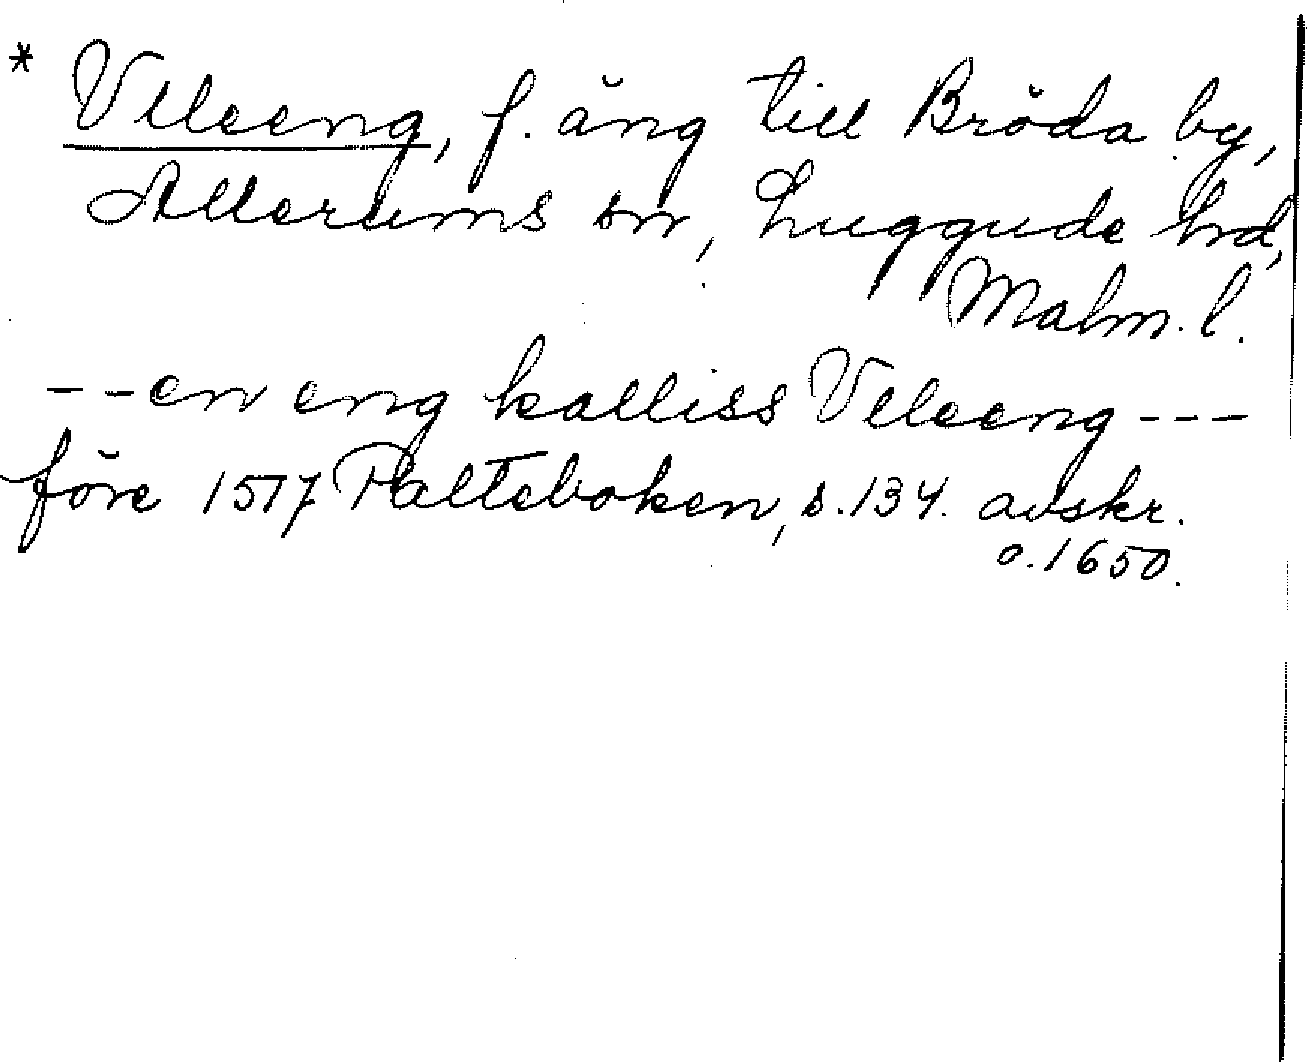 * Veleeng, f. äng till Bröda by,
Allerums sn, Luggude hrd,
Malm. l.
--en eng kalliss Veleeng---
före 1517 Palteboken, s.134. avskr.
o.1650.